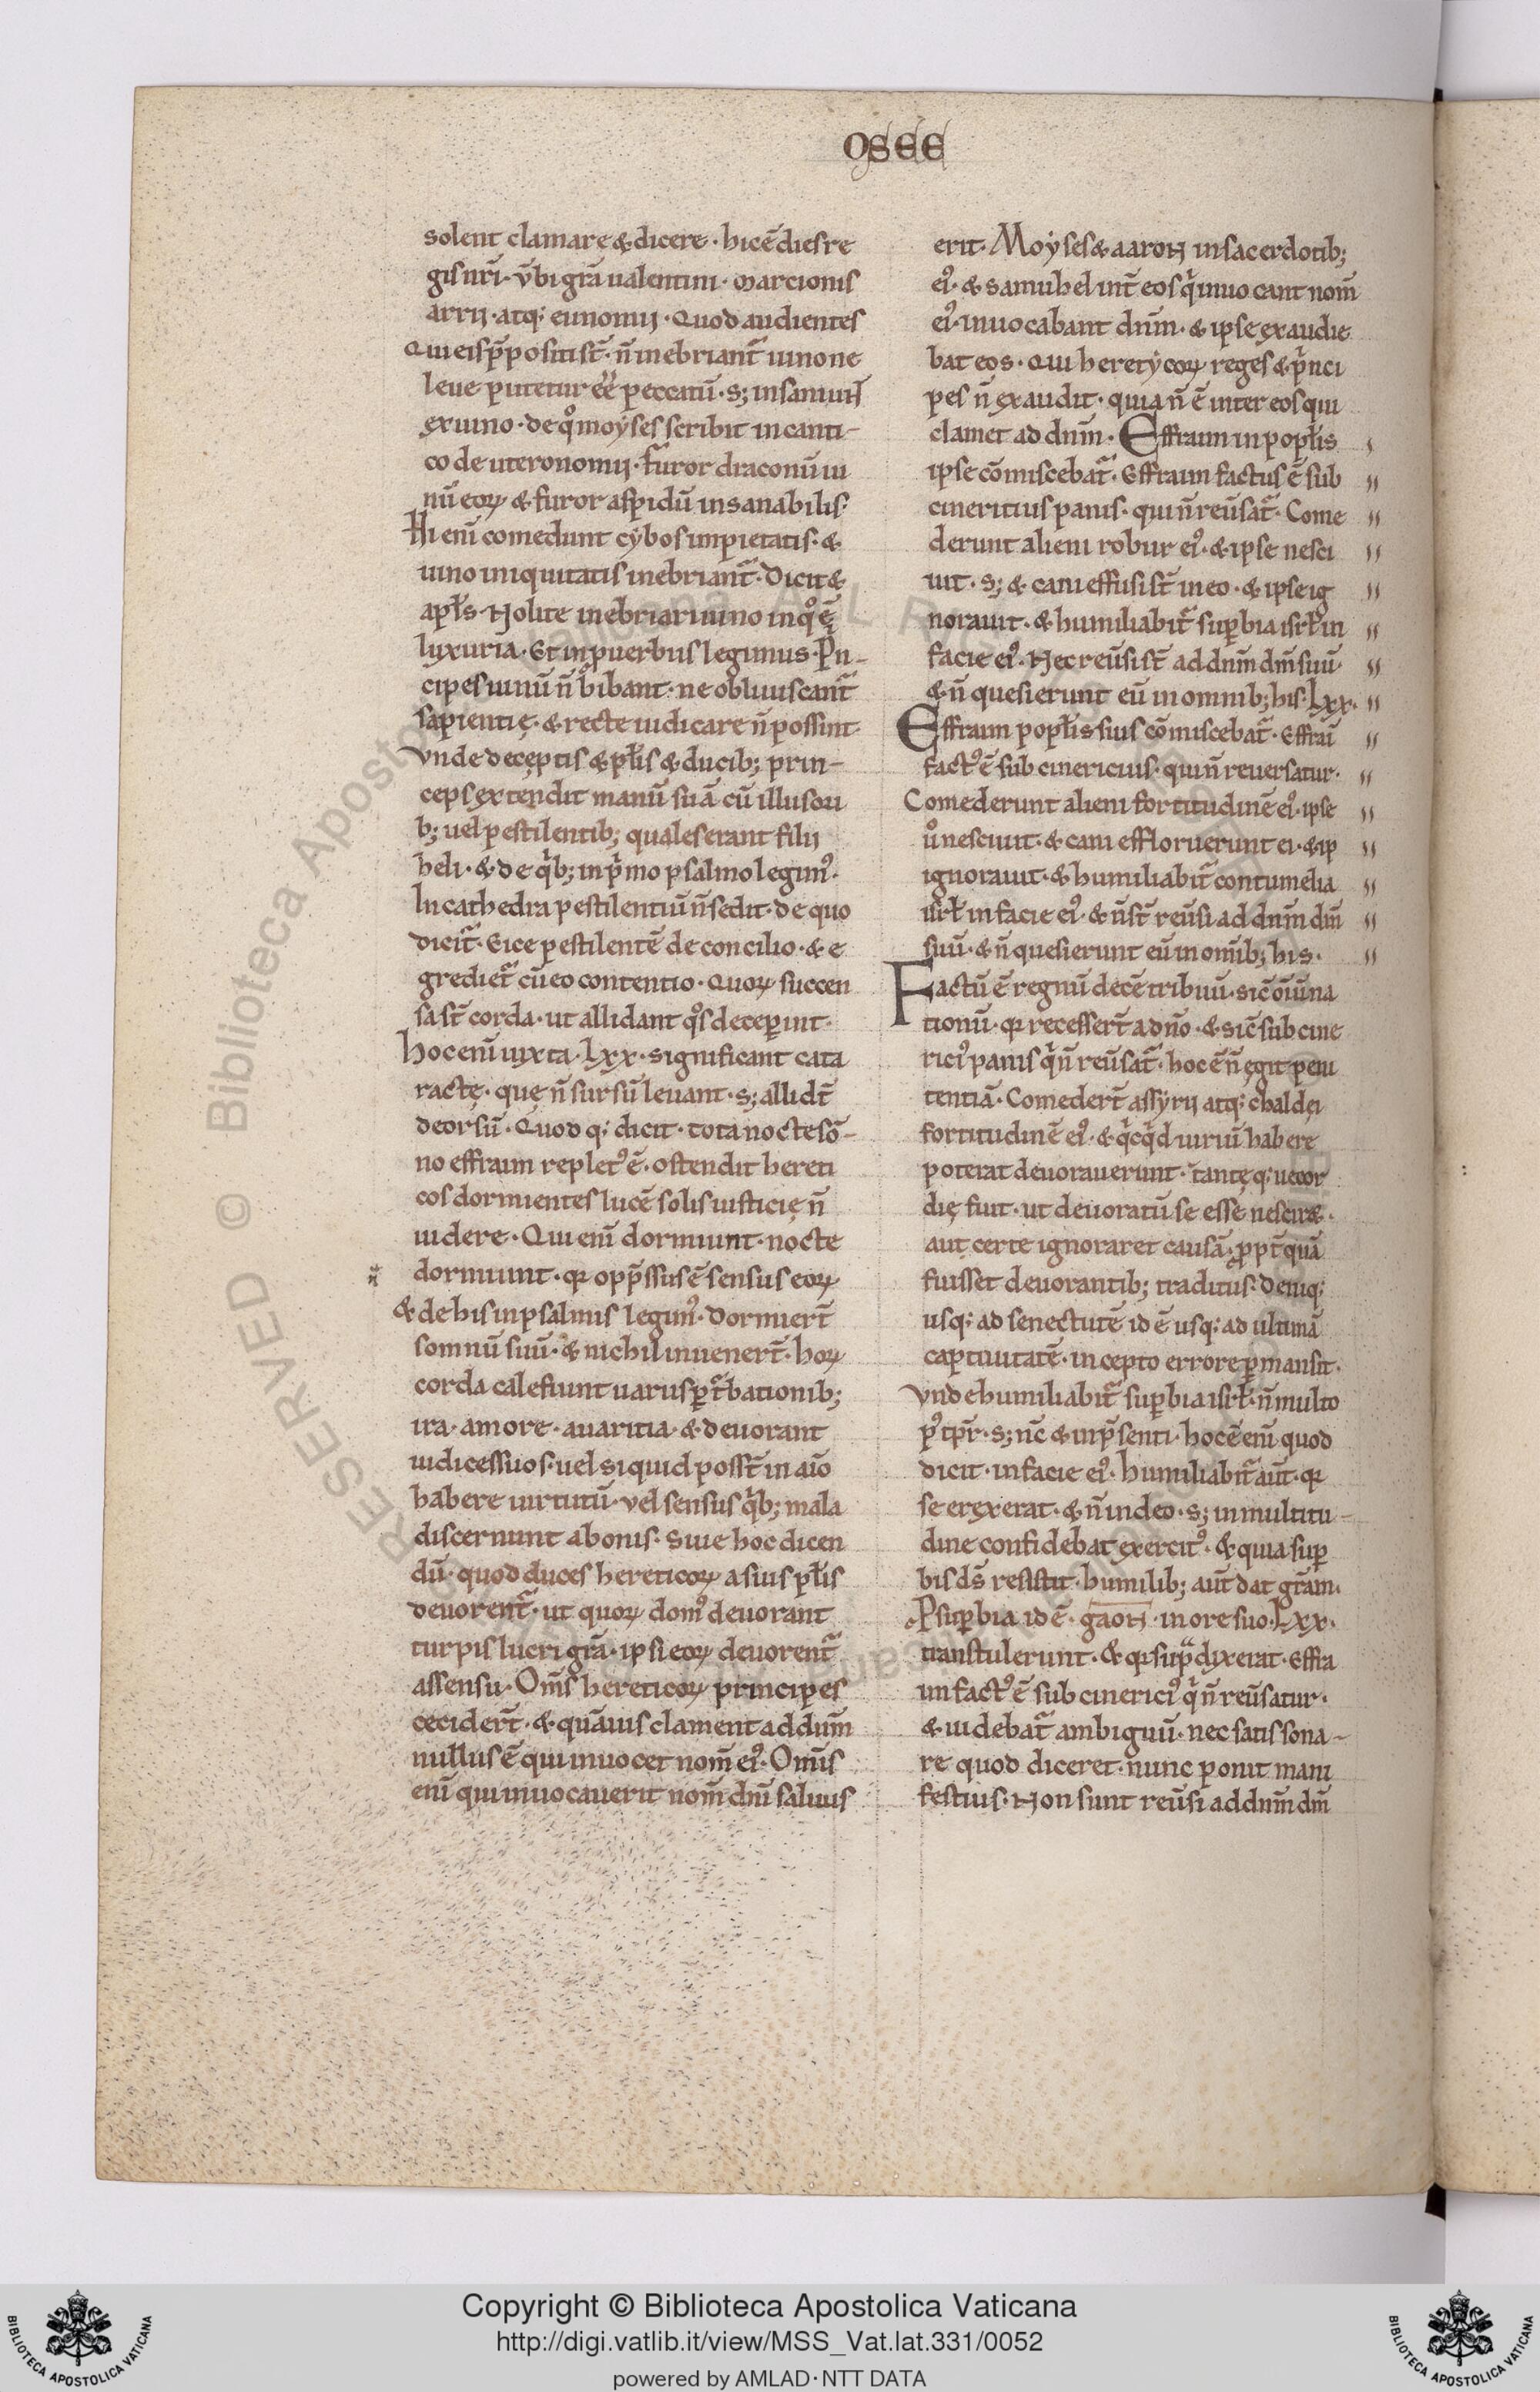 OSEE
solent clamare & dicere · hic ē dies re
gis nr̄i · v̄bi gr̄a ualentini · Marcionis
arrii · atq; eunomii · Quod audientes
Qui eis p̄positi st̄ · n̄ inebriant᷑ uino ne
leue putetur ēē peccatū · s; insaniun̄
ex uino · de qͦ moẏses scribit in canti-
co deuteronomii · furor draconū ui
nū eoꝝ & furor aspidū insanabilis·
Hi enī comedunt cẏbos impietatis · &
uino iniquitatis inebriant᷑ · Dicit &
apl̄s · Nolite inebriari uino in qͦ ē
luxuria · Et in ꝓuerbiis legimus · Pn-
cipes uinū n̄ bibant · ne obliuiscant᷑
sapientię · & recte iudicare n̄ possint·
Vnde deceptis & pl̄is & ducib; prin-
ceps extendit manū suā cū illusori
b; uel pestilentib; quales erant filii
heli · & de qⁱb; in pⁱmo psalmo legimꝰ·
In cathedra pestilentiū n̄ sedit · de quo
dicit᷑ · Eice pestilentē de concilio · & e
grediet᷑ cū eo contentio · Quoꝝ succen
sa st̄ corda · ut allidant qͦs deceꝑint·
hoc enī iuxta · Lxx · significant cata
ractę · quę n̄ sursū leuant · s; allidt̄
deorsū · Quod q; dicit · tota nocte sō-
no effraim repletꝰ ē · ostendit hereti
cos dormientes lucē solis iusticię n̄
uidere · Qui enī dormiunt · nocte
dormiunt · qꝛ opp̄ssus ē sensus eoꝝ
& de his in psalmis legimꝰ · Dormiert̄
somnū suū · & nichil inuenert̄ · hoꝝ
corda calefiunt uariis ꝑt᷑bationib;
ira · amore · auaritia · & deuorant
iudices suos · uel si quid posst̄ in aīo
habere uirtutū · vel sensus qⁱb; mala
discernunt a bonis · Siue hoc dicen
dū · quod duces hereticoꝝ a suis pl̄is
deuorent᷑ · ut quoꝝ domꝰ deuorant
turpis lucri gr̄a · ipsi eoꝝ deuorent᷑
assensu · Om̄s hereticoꝝ principes
cecidert̄ · & quāuis clament ad dnm̄
nullus ē qui inuocet nom̄ eiꝰ · Omīs
enī qui inuocauerit nom̄ dnī saluus
erit · Moẏses & aaron in sacerdotib;
eiꝰ · & samuhel int̄ eos qⁱ inuocant nom̄
eiꝰ · inuocabant dnm̄ · & ipse exaudie
bat eos · Qui heretẏcoꝝ reges & pⁱnci
pes n̄ exaudit · quia n̄ ē inter eos qui
clamet ad dnm̄ · Effraim in popl̄is
ipse cōmiscebat᷑ · Effraim factus ē sub
cineritius panis · qui n̄ reūsat᷑ · Come
derunt alieni robur eiꝰ · & ipse nesci
uit · s; & cani effusi st̄ in eo · & ipse ig
norauit · & humiliabit᷑ suꝑbia isrl̄ in
facie eiꝰ · Nec reūsi st̄ ad dnm̄ dm̄ suū·
& n̄ quesierunt eū in omnib; his · Lxx·
Effraim popl̄is suis cōmiscebat᷑ · Effraī
factꝰ ē sub cinericius · qui n̄ reuersatur·
Comederunt alieni fortitudinē eiꝰ · ipse
uͦ nesciuit · & cani effloruerunt ei · & ip
ignorauit · & humiliabit᷑ contumelia
isrl̄ in facie eiꝰ · & n̄ st̄ reūsi ad dnm̄ dm̄
suū · & n̄ quesierunt eū in omīb; his·
Factū ē regnū decē tribuū · sic̄ oīū na
tionū · qꝛ recessert̄ a dn̄o · & sic̄ sub cine
riciꝰ panis qⁱ n̄ reūsat᷑ · hoc ē n̄ ęgit peni
tentiā · Comedert̄ assẏrii atq; chaldęi
fortitudinē eiꝰ · & qⁱcqⁱd uiriū habere
poterat deuorauerunt · tantęq; uecor
dię fuit · ut deuoratū se esse nescir& ·
aut certe ignoraret causā · ꝓpt̄ quā
fuisset deuorantib; traditus · Deniq;
usq; ad senectutē id ē usq; ad ultimā
captiuitatē · in cepto errore ꝑmansit·
Vnde humiliabit᷑ suꝑbia isrl̄ · n̄ multo
pꝰ tp̄r · s; nc̄ & in p̄senti · hoc ē enī quod
dicit · in facie eiꝰ · humiliabit᷑ aūt · qꝛ
se erexerat · & n̄ in deo · s; in multitu-
dine confidebat exercitꝰ · & quia suꝑ
bis ds̄ resistit · humilib; aūt dat gr̄am·
P suꝑbia id ē · gaon · in ore suo · Lxx·
transtulerunt · & qꝛ sup̄ dixerat · Effra
im factꝰ ē sub cinericiꝰ qⁱ n̄ reūsatur·
& uidebat᷑ ambiguū · nec satis sona-
re quod diceret · nunc ponit mani
festius · Non sunt reūsi ad dnm̄ dm̄
Copyright © Biblioteca Apostolica Vaticana
http://digi.vatlib.it/view/MSS_Vat.lat.331/0052
powered by AMLAD·NTT DATA
BIBLIOTECA APOSTOLICA VATICANA
BIBLIOTECA APOSTOLICA VATICANA